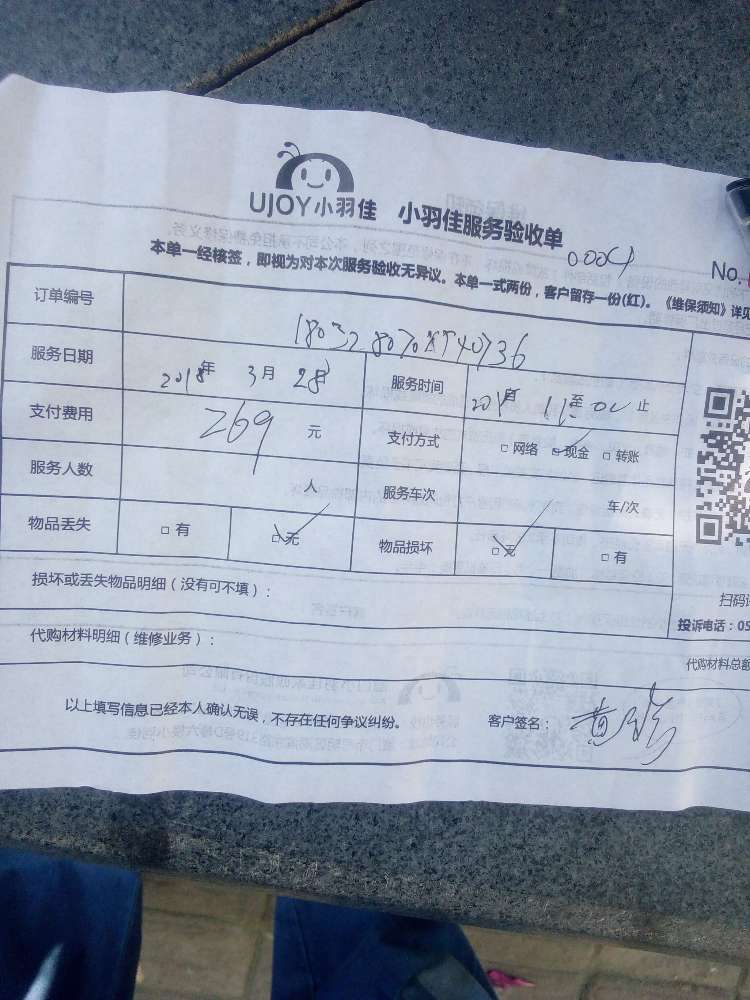 UJOY小羽佳 小羽佳服务验收单
0004
No.
本单一经核签，即视为对本次服务验收无异议。本单一式两份，客户留存一份(红)。《维保须知》详见
订单编号
服务日期 2018年 3月 28 服务时间 自 11至 止
支付费用 269 元 支付方式 □网络 □现金 □转账
服务人数 人 服务车次 车/次
物品丢失 □有 □无 物品损坏 □无 □有
损坏或丢失物品明细（没有可不填）：
扫码
投诉电话：05
代购材料明细（维修业务）：
代购材料总额
以上填写信息已经本人确认无误，不存在任何争议纠纷。 客户签名： 黄